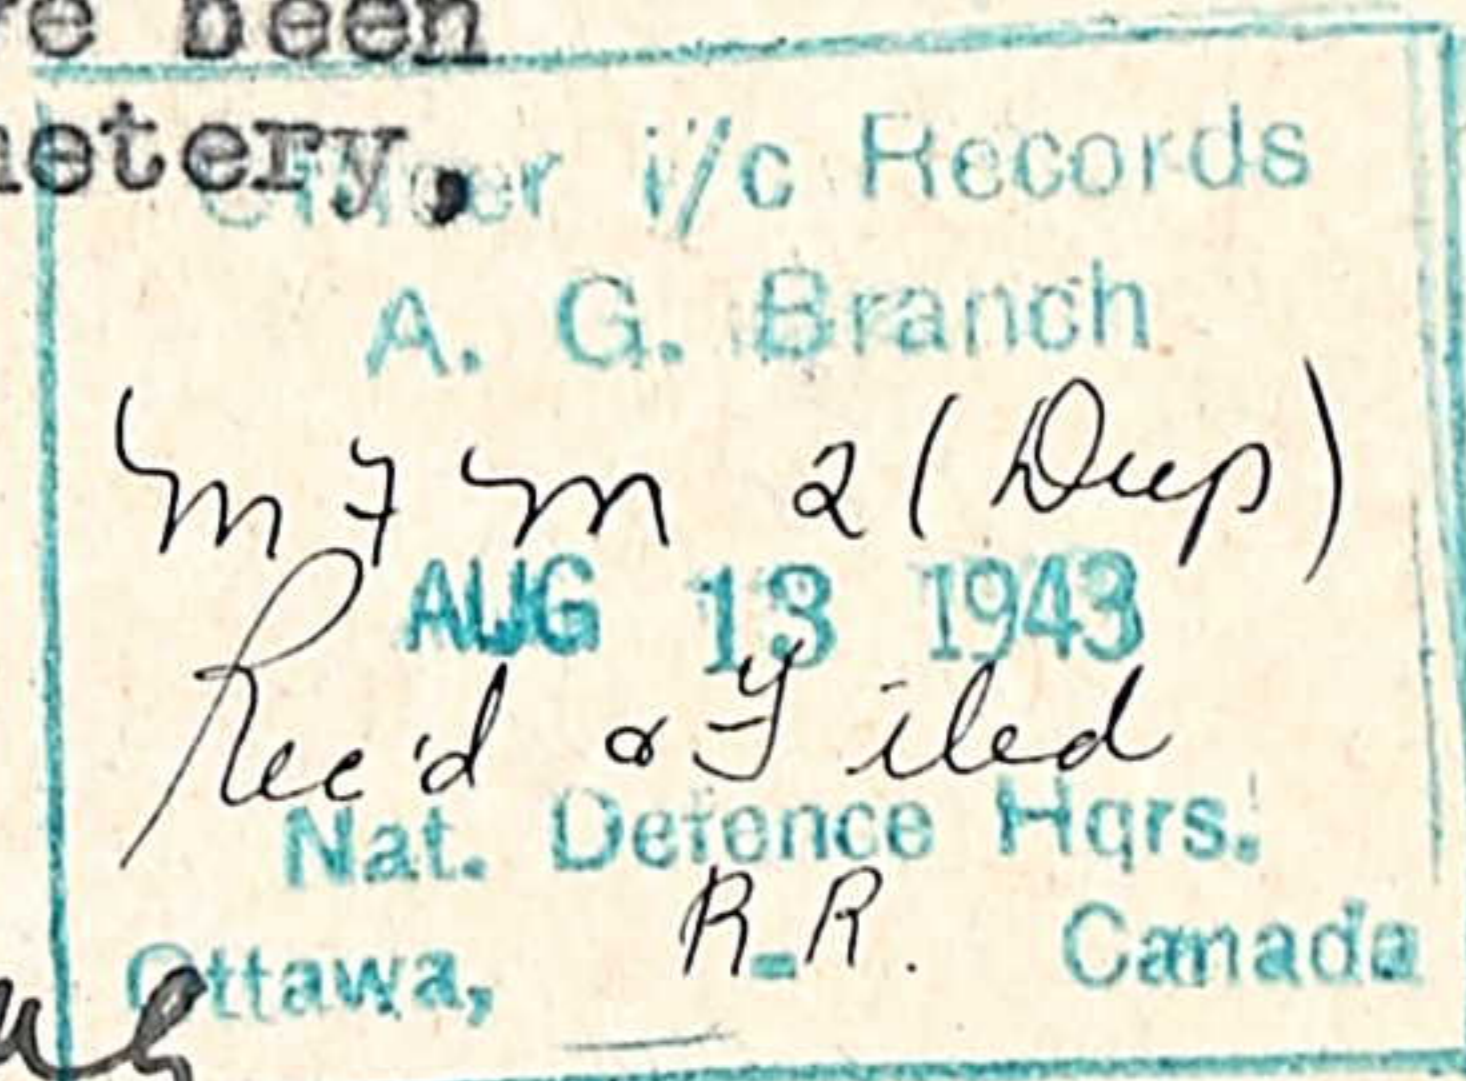 e been
etery,
Officer i/c Records
A. G. Branch
M F M 2 (Dup)
AUG 13 1943
Rec'd & Filed
Nat. Defence Hqrs.
R.R.
Ottawa, - Canada